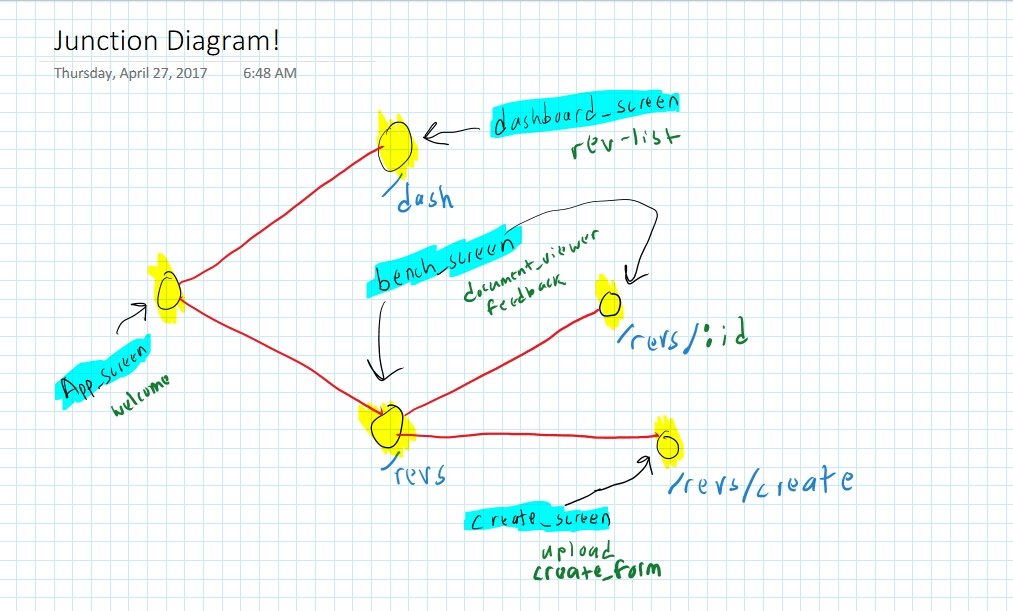 Junction Diagram!
Thursday, April 27, 2017 6:48 AM
dashboard_screen
rev-list
/dash
bench_screen
document_viewer
feedback
/revs/:id
App_screen
welcome
/revs
/revs/create
create_screen
upload
create_form